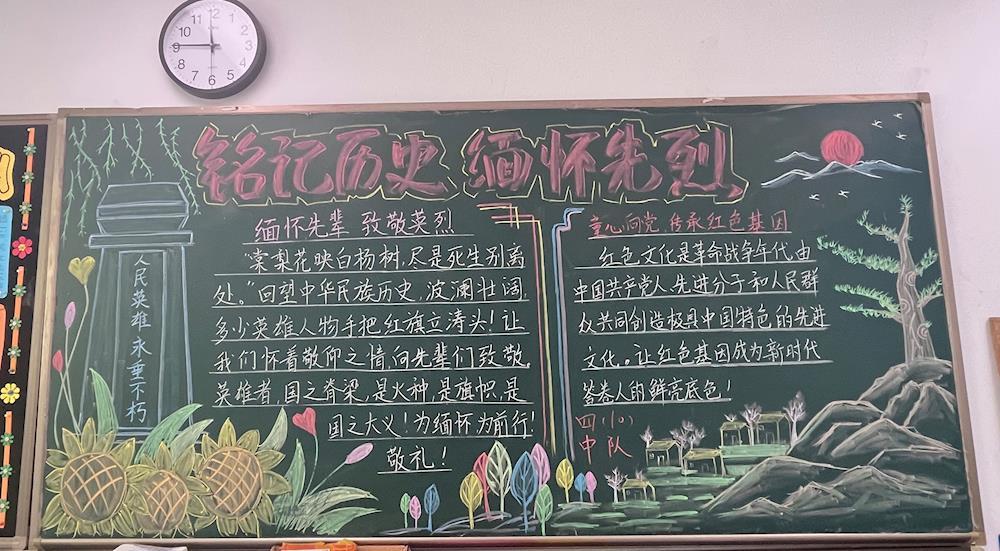 12
11
1
10
2
9
3
8
4
7
5
6
铭记历史 缅怀先烈
人民英雄永垂不朽
缅怀先辈 致敬英烈
“棠梨花映白杨树,尽是死生别离
处。”回望中华民族历史,波澜壮阔
多少英雄人物手把红旗立涛头!让
我们怀着敬仰之情,向先辈们致敬。
英雄者,国之脊梁,是火种,是旗帜,是
国之大义!为缅怀为前行!
敬礼!
童心向党,传承红色基因
红色文化是革命战争年代,由
中国共产党人、先进分子和人民群
众共同创造极具中国特色的先进
文化。让红色基因成为新时代
答卷人的鲜亮底色!
四(10)
中队